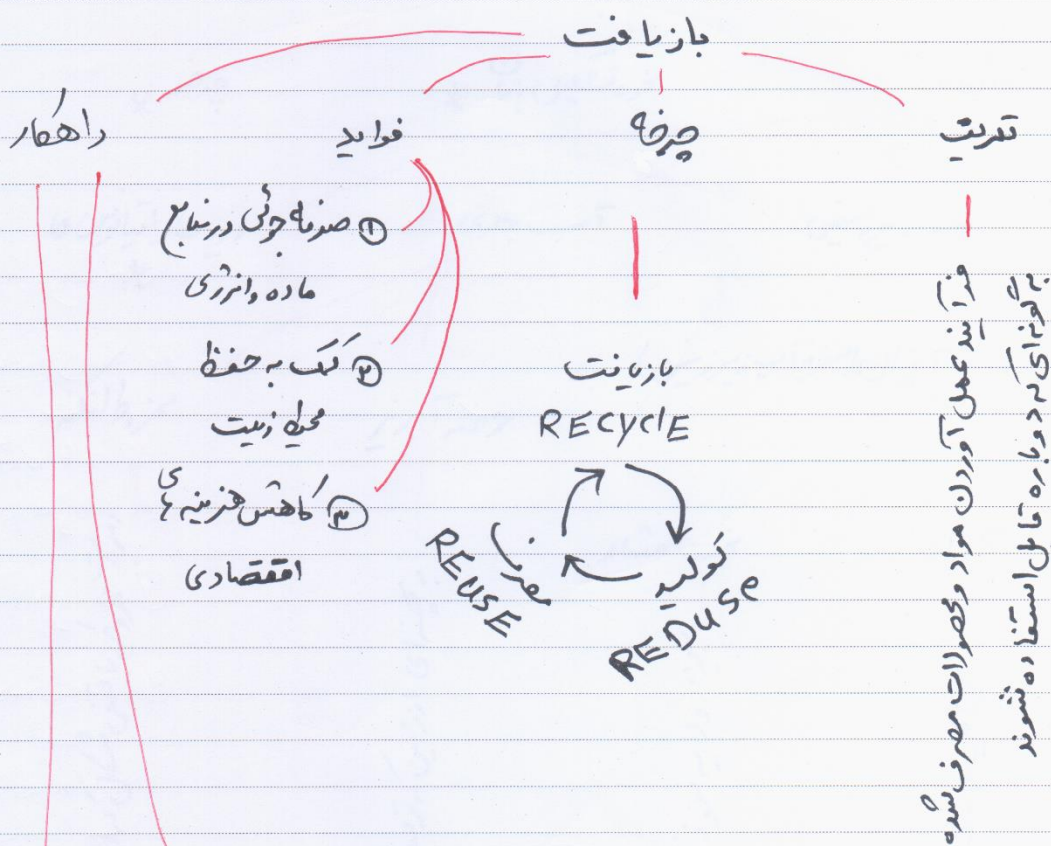 بازیافت
تعریف
چرخه
فواید
راهکار
فرآیند عمل آوردن مواد و محصولات مصرف شده
به گونه ای که دوباره قابل استفاده شوند
بازیافت
RECYCLE
تولید
REDUSE
مصرف
REUSE
① صرفه جوئی در منابع
ماده و انرژی
② کمک به حفظ
محیط زیست
③ کاهش هزینه های
اقتصادی